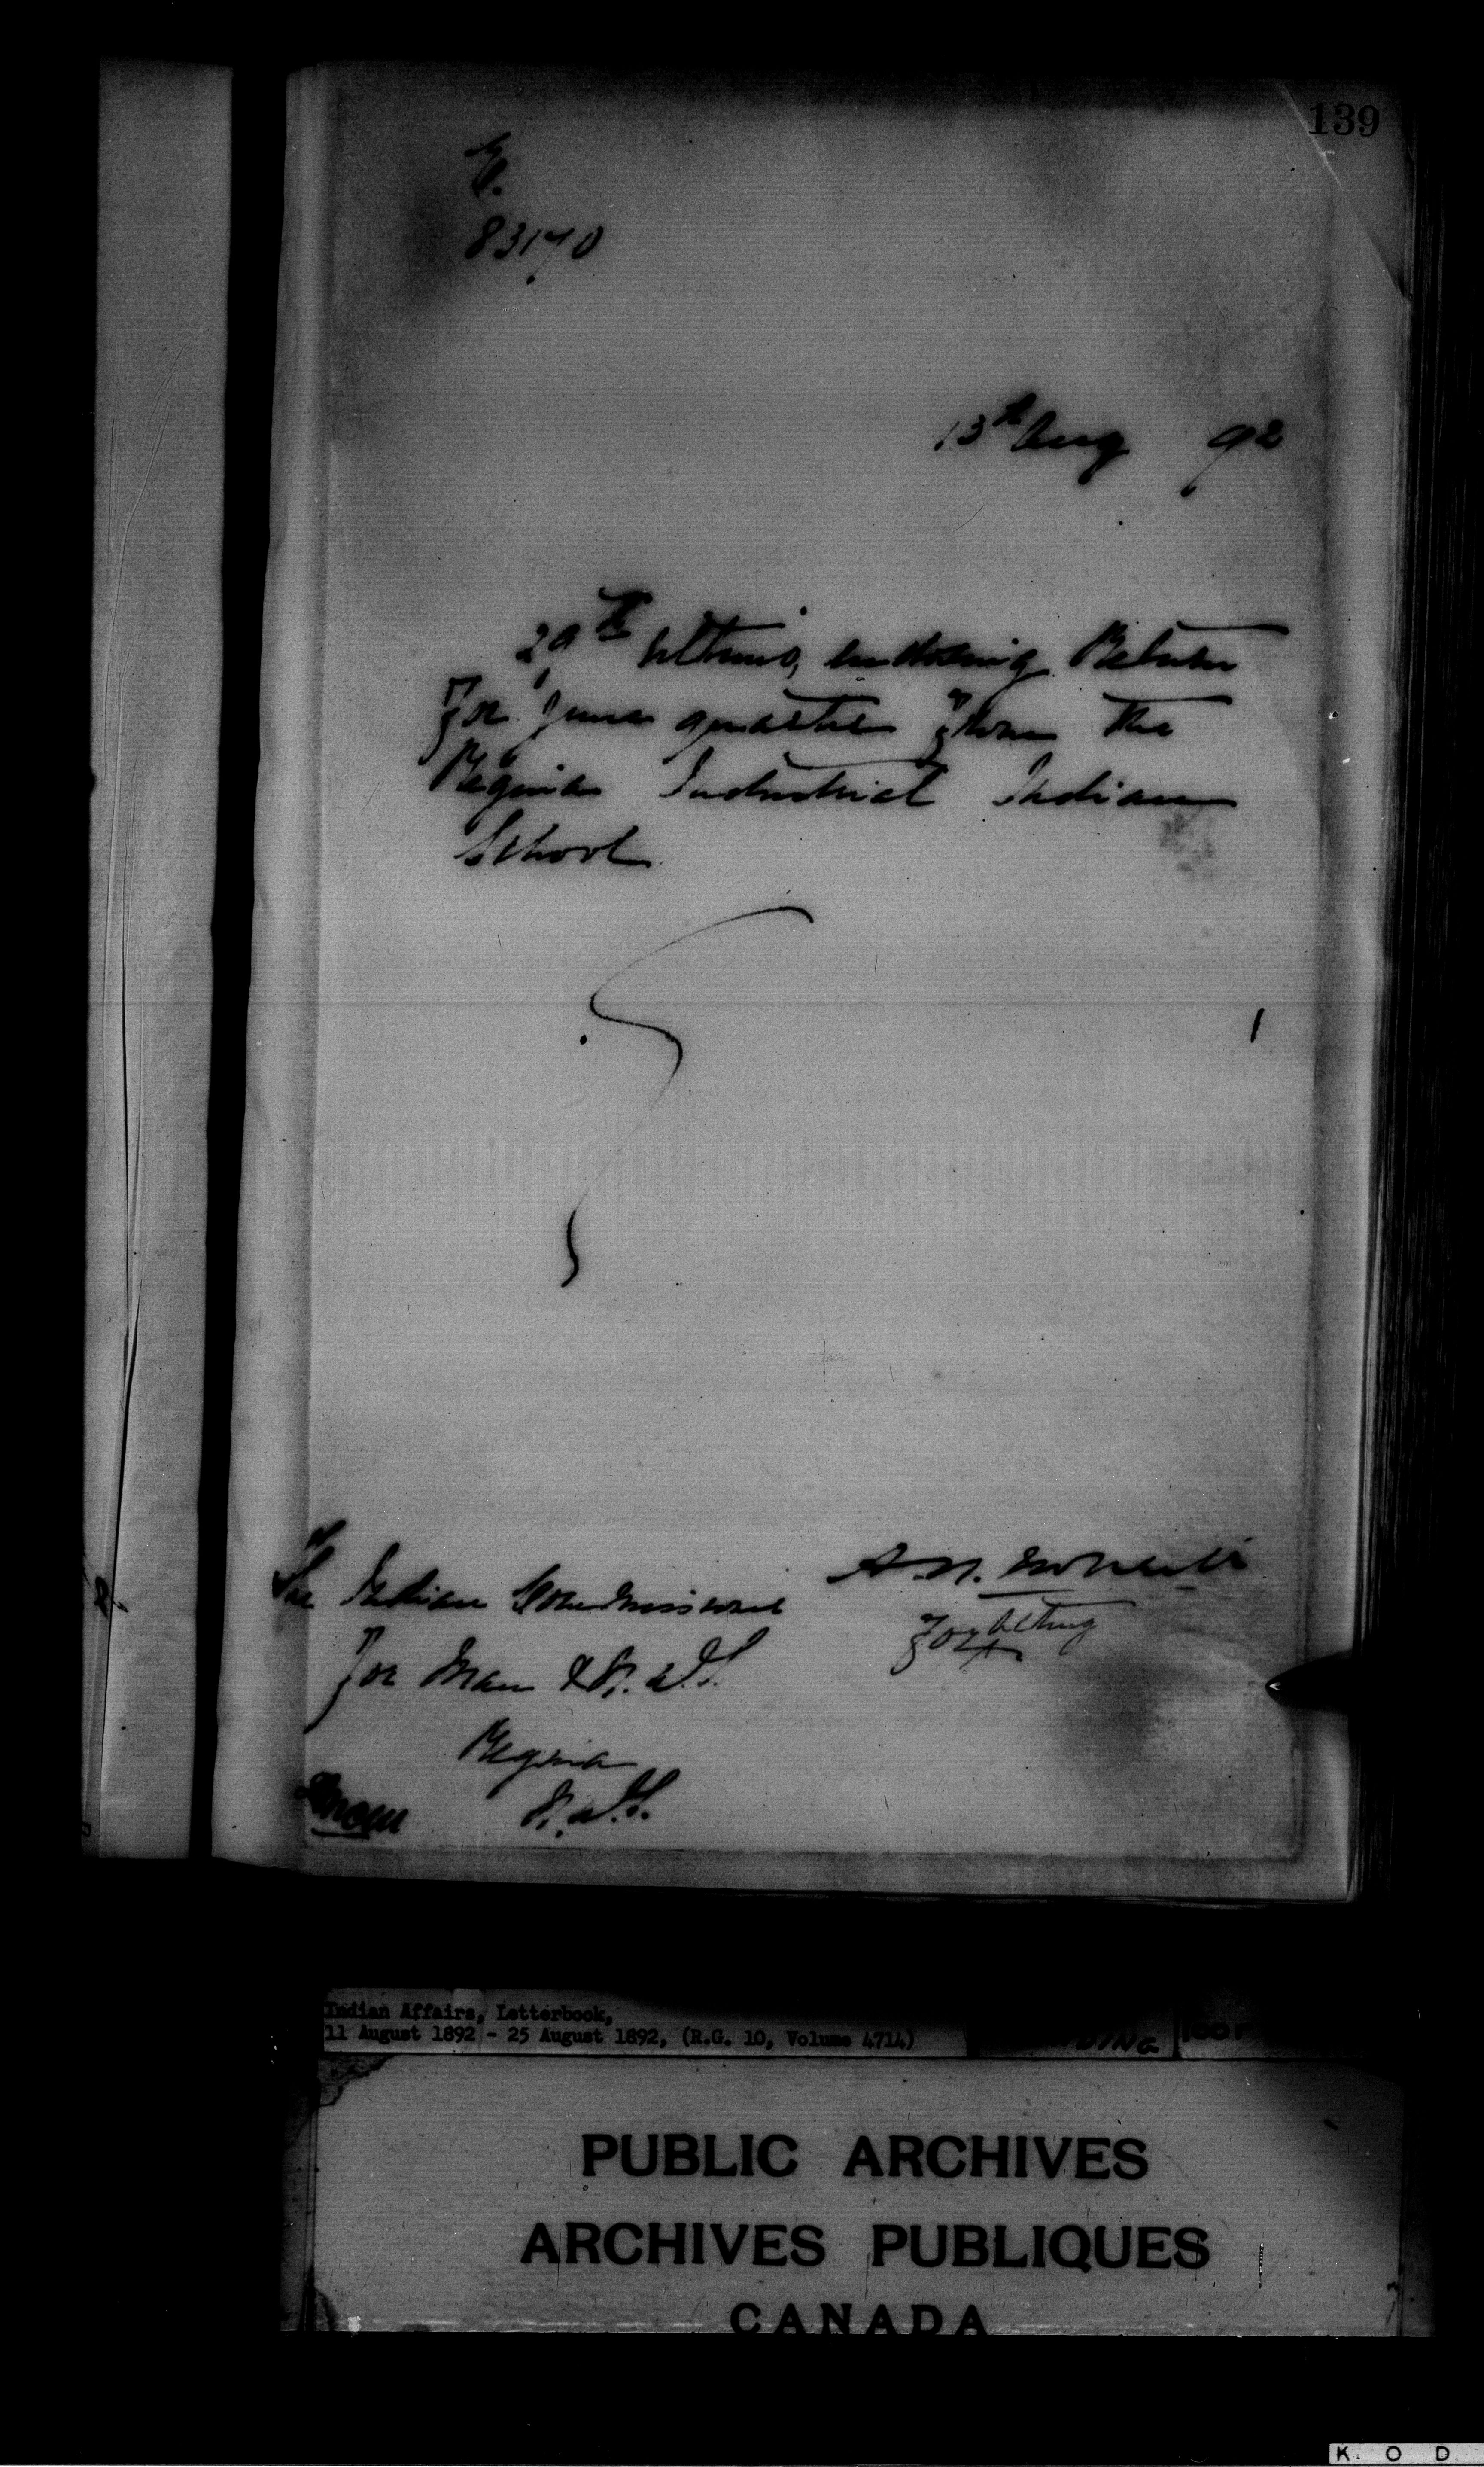 139
83170
13th Aug 92
29th Ultimo, enclosing Return
for June quarter from the
Regina Industrial Indian
School
The Indian Commissioner
for Man & N.W.T.
Regina
N.W.T.
A. N. McNeill
for Acting
Indian Affairs, Letterbook,
11 August 1892 - 25 August 1892, (R.G. 10, Volume 4714)
PUBLIC ARCHIVES
ARCHIVES PUBLIQUES
CANADA
K O D